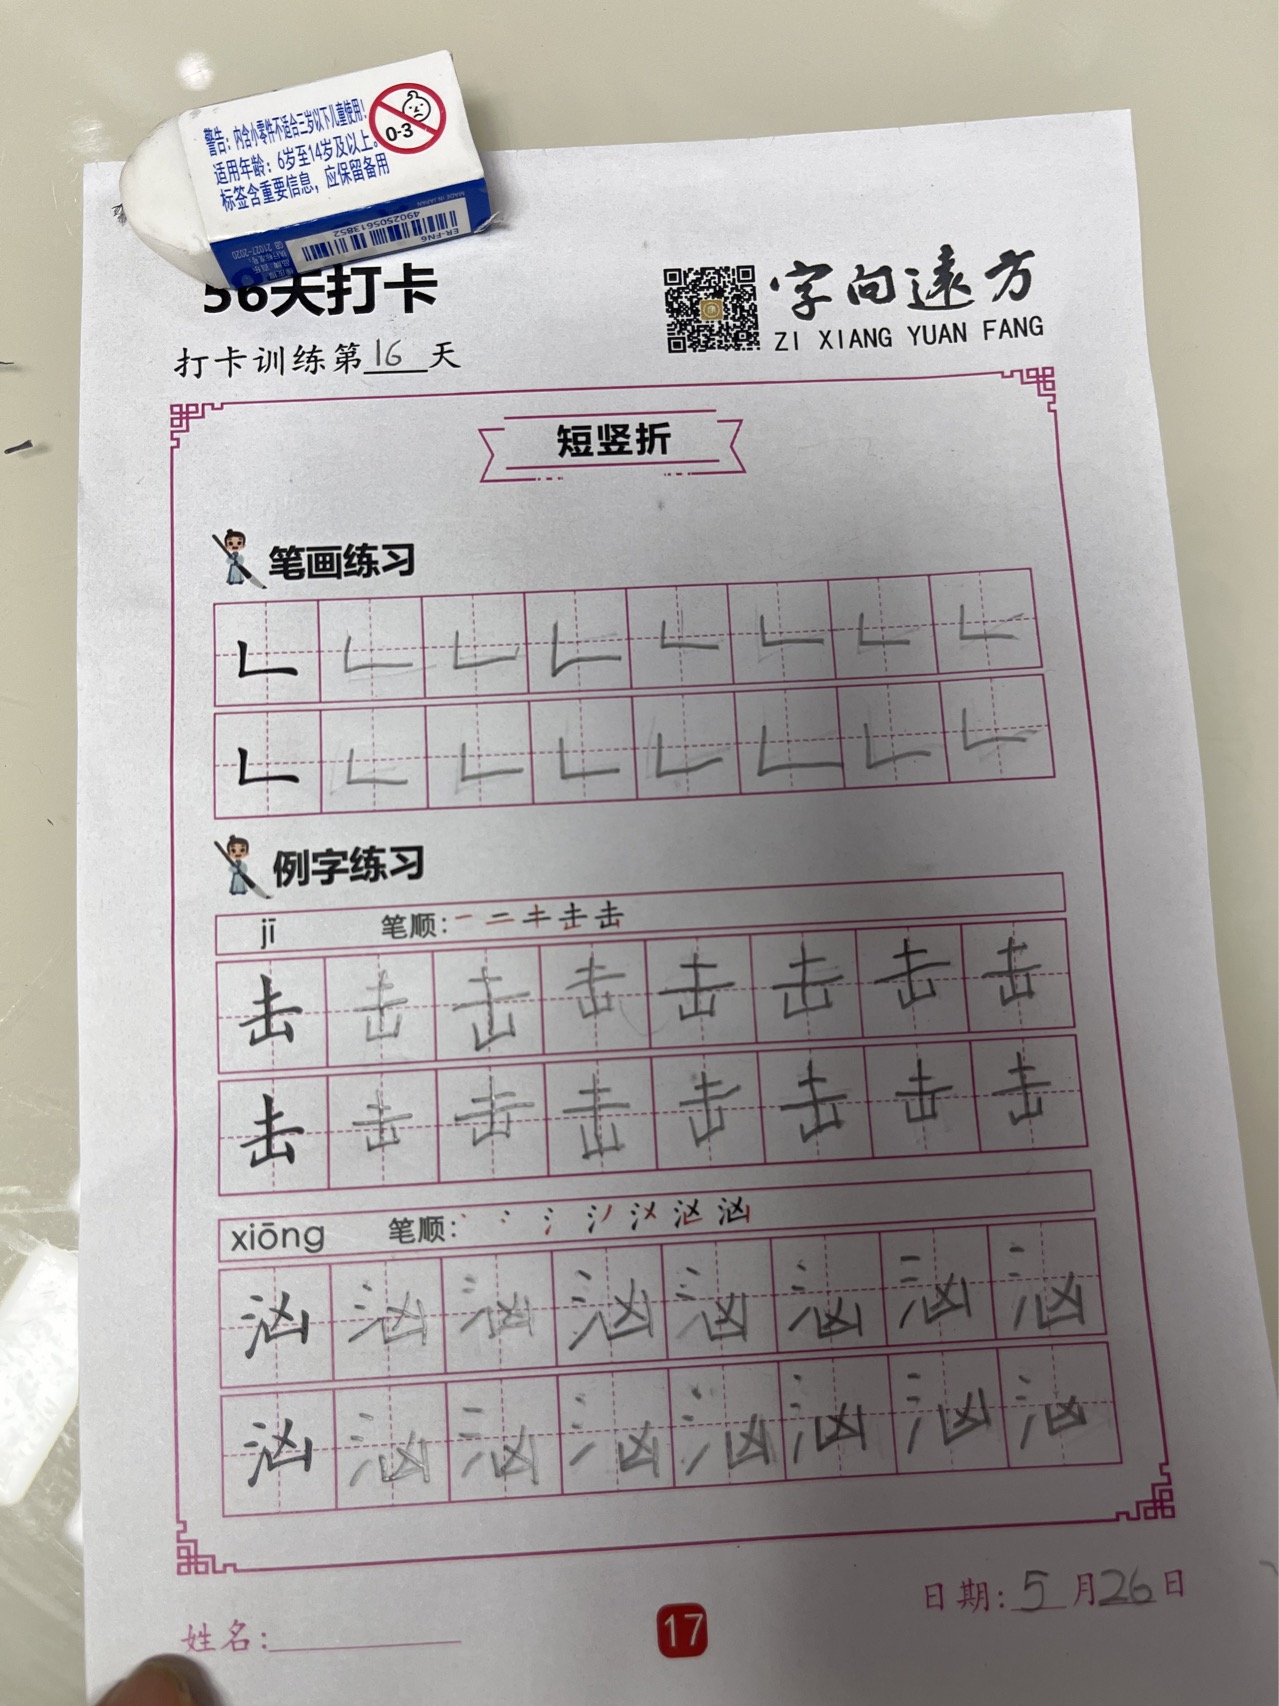 警告：内含小零件不适合三岁以下儿童使用！
适用年龄：6岁至14岁及以上。
标签含重要信息，应保留备用
0-3
MADE IN JAPAN
ER-FN6
4902505613852
GB 21027-2020
56天打卡
字向远方
ZI XIANG YUAN FANG
打卡训练第16天
短竖折
笔画练习
𠃊 𠃊 𠃊 𠃊 𠃊 𠃊 𠃊 𠃊
𠃊 𠃊 𠃊 𠃊 𠃊 𠃊 𠃊 𠃊
例字练习
jī 笔顺：
击 击 击 击 击 击 击 击
击 击 击 击 击 击 击 击
xiōng 笔顺：
汹 汹 汹 汹 汹 汹 汹 汹
汹 汹 汹 汹 汹 汹 汹 汹
日期：5月26日
姓名：
17